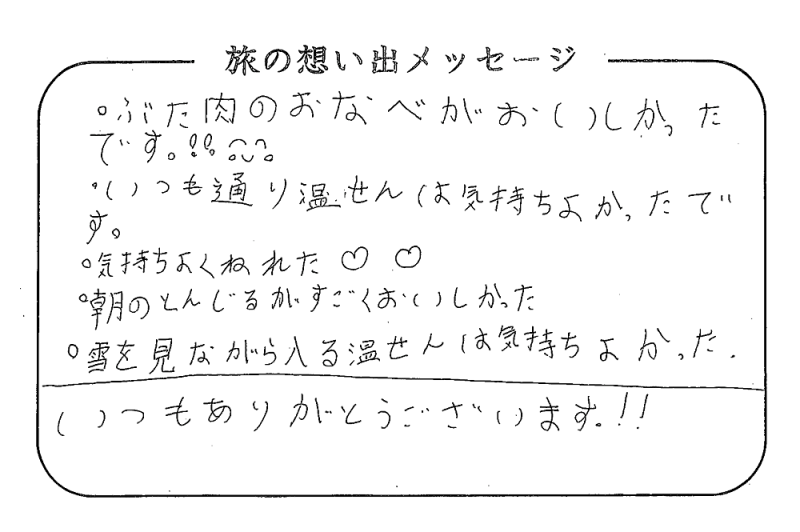 旅の想い出メッセージ
○ぶた肉のおなべがおいしかった
です。!!
・いつも通り温せんは気持ちよかったで
す。
○気持ちよくねれた♡ ♡
○朝のとんじるがすごくおいしかった
○雪を見ながら入る温せんは気持ちよかった.
いつもありがとうございます.!!